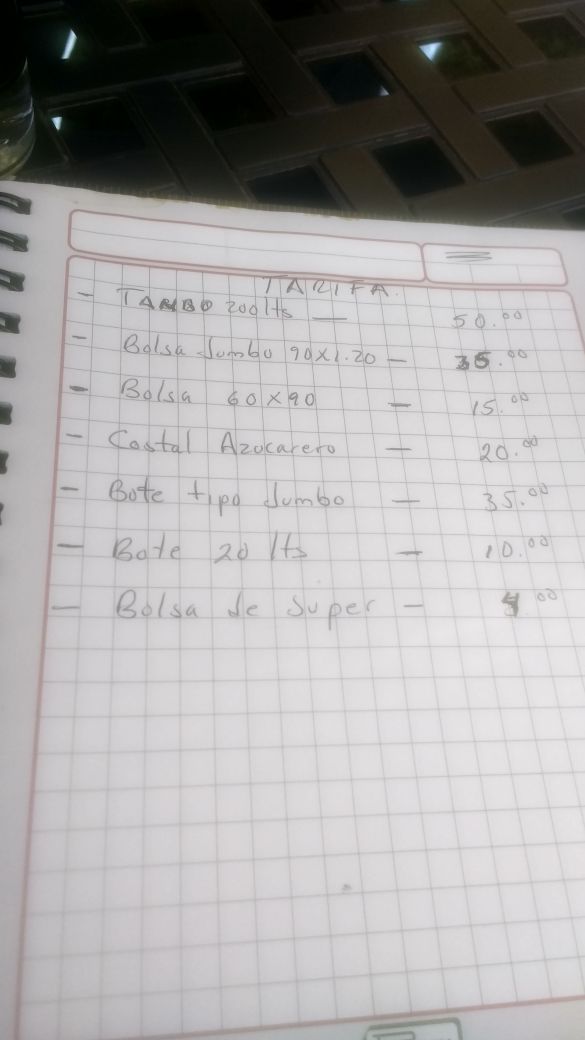 TARIFA.
- TAMBO 200 lts — 50.00
- Bolsa Jumbo 90x1.20 — 35.00
- Bolsa 60x90 — 15.00
- Costal Azucarero — 20.00
- Bote tipo Jumbo — 35.00
- Bote 20 lts — 10.00
- Bolsa de Super —